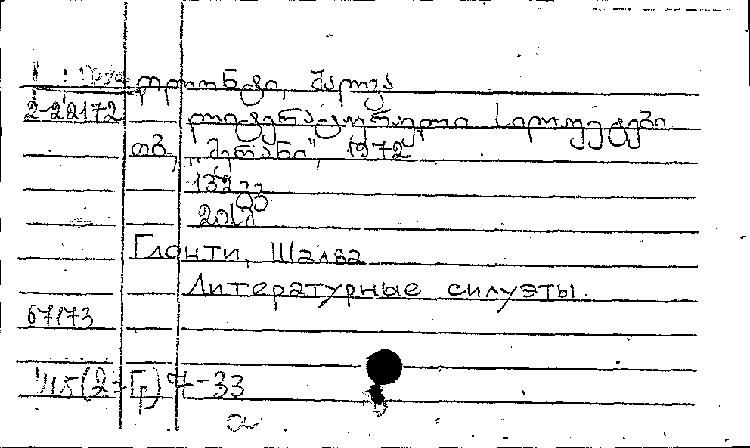 ღლონტი, შალვა
2-22172
ლიტერატურული სილუეტები
თბ, „მერანი", 1972
132 გვ
20სმ
Глонти, Шалва
Литературные силуэты.
67173